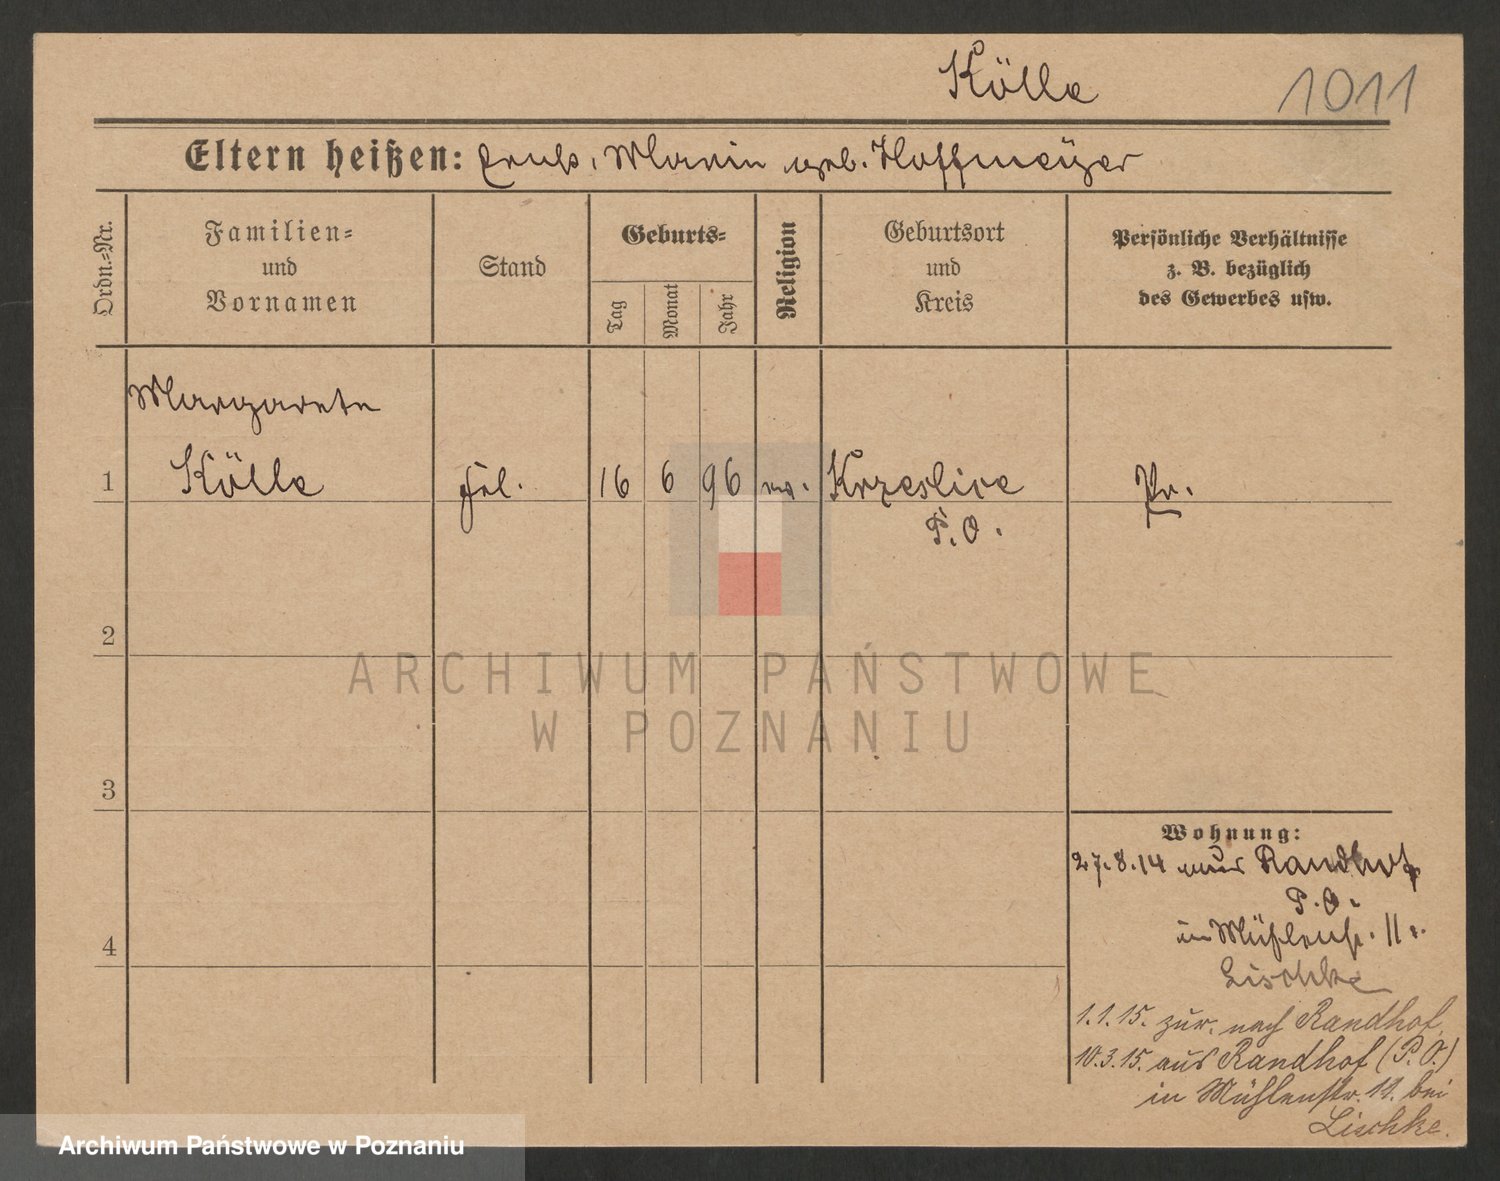 Kölle 1011
Eltern heißen: Ernst, Marie geb. Hoffmeyer
Ordn.-Nr.
Familien- und Vornamen
Stand
Geburts-
Tag
Monat
Jahr
Religion
Geburtsort und Kreis
Persönliche Verhältnisse
z. B. bezüglich
des Gewerbes usw.
Margarete
1 Kölle frl. 16 6 96 ev. Krzeslice Pr.
P. O.
2
ARCHIWUM PAŃSTWOWE
W POZNANIU
3
Wohnung:
27.8.14 aus Randhof
P. O.
4 in Mühlenstr. 11.
Lischke
1.1.15. zur. nach Randhof,
10.3.15. aus Randhof (P. O.)
in Mühlenstr. 11. bei
Lischke.
Archiwum Państwowe w Poznaniu